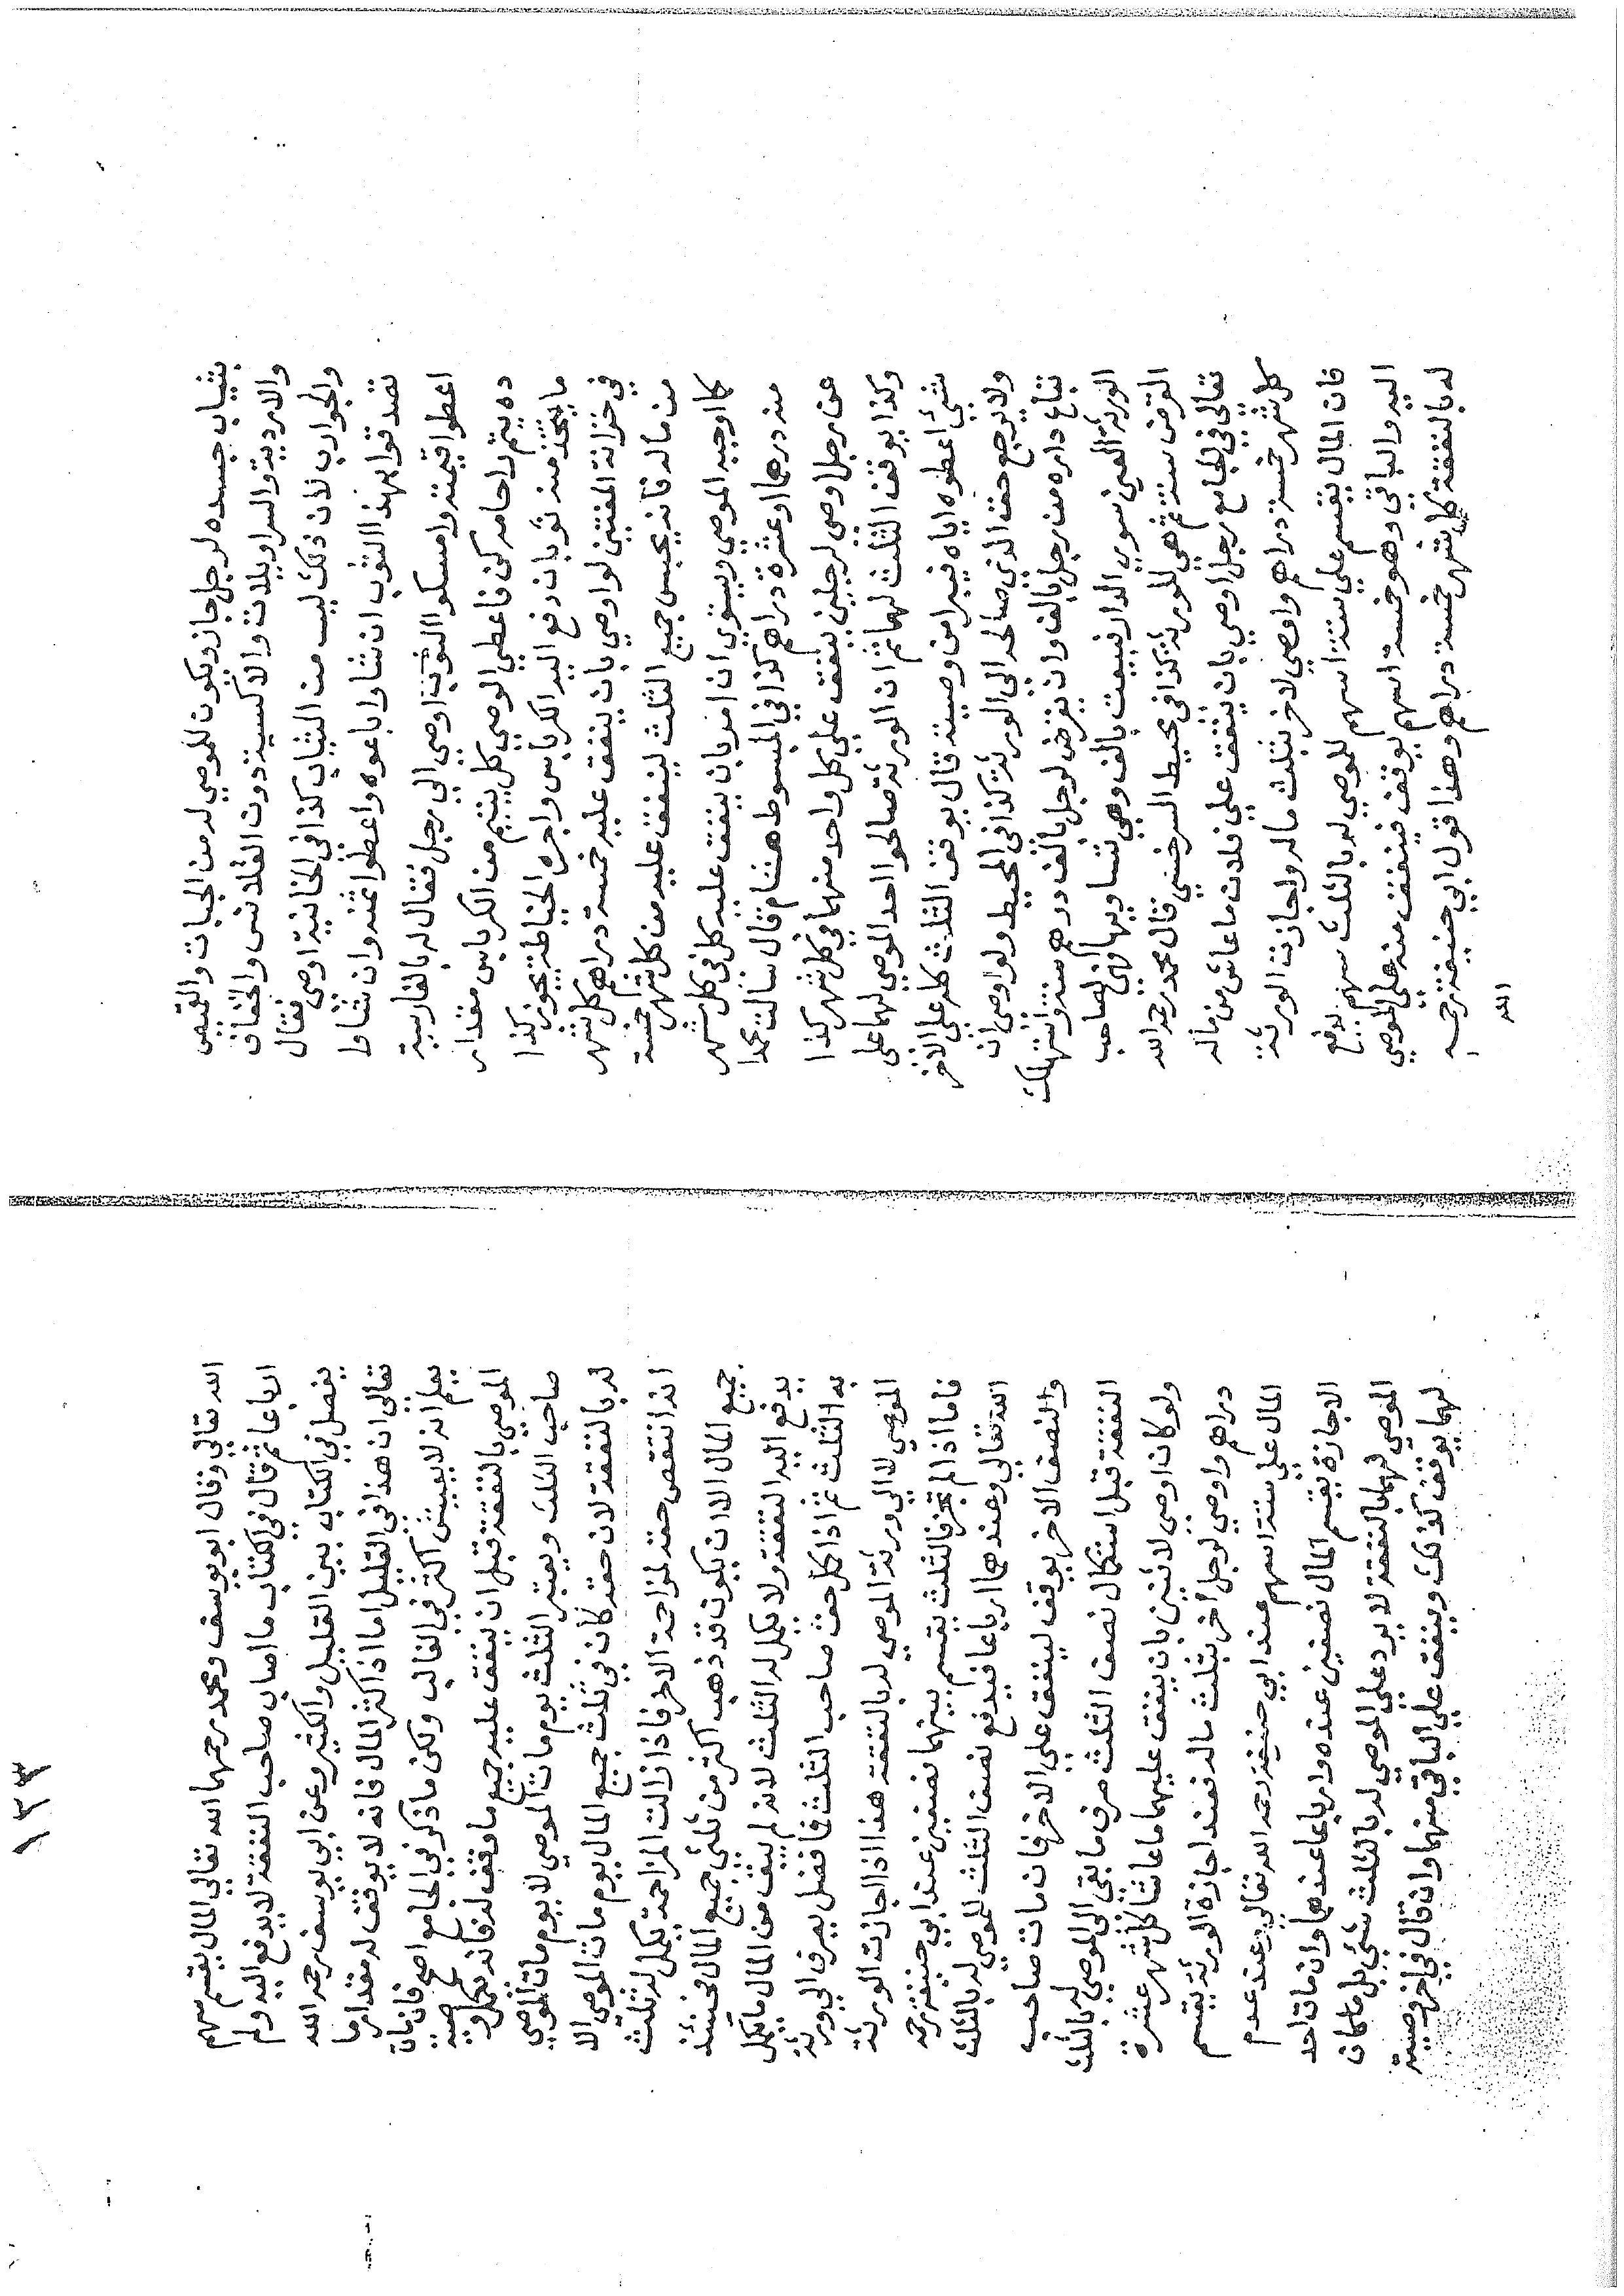 بثياب جسده لرجل جاز ويكون للموصي له من الجبات والقميص
والاردية والسراويلات والاكسية دون القلانس والخفاف
والجوارب لان ذلك ليس من الثياب كذا في الخانية اوصي فقال
تصدقوا بهذا الثوب ان شاوا باعوه واعطوا ثمنه وان شاوا
اعطوا قيمته وامسكوا الثوب اوصي الي رجل فقال له بالفارسية
ده يتم راحامه كن فاعطي الوصي كل يتيم من الكرباس مقدار
ما يتخذ منه ثوبا ن دفع اليه الكرباس واجرة الخياطة يجوز كذا
في خزانة المفتين لو اوصي بان ينفق عليه خمسة دراهم كل شهر
من ماله فانه يحبس جميع الثلث لينفق عليه من كل شهر خمسة
كما اوجبه الموصي ويستوي ان امر بان ينفق عليه كل في كل شهر
منه درهما او عشرة دراهم كذا في المبسوط هشام قال سالت محمدا
عن رجل اوصي لرجلين ينفق علي كل واحد منهما في كل شهر كذا
وكذا يوقف الثلث لهما ثم ان الورثة صالحوا احد الموصي لهما علي
شيء اعطوه اياه فيبرا من وصيته قال يوقف الثلث كله علي الاخر
ولا يرجع حقه الذي صالحه الي الورثة كذا في المحيط ولو اوصي ان
تباع داره من رجل بالف وان يقرض لرجل بالف درهم سنة واستهلك
الورثة العين سوي الدار فبيعت بالف وهي تساويها فهي لصاحب
القرض سنة ثم هي للورثة كذا في محيط السرخسي قال محمد رحمه الله
تعالي في الجامع رجل اوصي بان ينفق علي فلان ما عاش من ماله
كل شهر خمسة دراهم واوصي لاخر بثلث ماله واجازت الورثة
فان المال يقسم علي ستة اسهم للموصي له بالثلث سهم يدفع
اليه والباقي وهو خمسة اسهم يوقف فينفق منه علي الموصي
له بالنفقة كل شهر خمسة دراهم وهذا قول ابي حنيفة رحمه
الله
١٣٣
الله تعالي وقال ابو يوسف ومحمد رحمهما الله تعالي المال يقسم بينهم
ارباعا ثم قال في الكتاب ما اصاب صاحب النفقة لا يدفع اليه ولم
يفصل في الكتاب بين القليل والكثير وعن ابي يوسف رحمه الله
تعالي ان هذا في القليل اما اذا كثر المال فانه لا يوقف له مقدار ما
يعلم انه لا يعيش اكثر في الغالب ولكن ما ذكر في الجامع اصح فان مات
الموصي بالنفقة قبل ان ينفق عليه جميع ما وقف له فانه يكمل وصية
صاحب الثلث ويعتبر الثلث يوم مات الموصي لا يوم مات الموصي
له بالنفقة لان حقه كان في ثلث جميع المال يوم مات الموصي الا
انه انتقص حقه لمزاحمة الاخر فاذا زالت المزاحمة يكمل له ثلث
جميع المال الا ان يكون قد ذهب اكثر من ثلثي جميع المال فحينئذ
يدفع اليه النفقة ولا يكمل له الثلث لانه لم يبق من المال ما يكمل
به الثلث ثم اذا كمل حق صاحب الثلث فما فضل يصرف الي ورثة
الموصي لا الي ورثة الموصي له بالنفقة هذا اذا اجازت الورثة
فاما اذا لم تجز فالثلث يقسم بينهما نصفين عند ابي حنيفة رحمه
الله تعالي وعندهما ارباعا فيدفع نصف الثلث للموصي له بالثلث
والنصف الاخر يوقف لينفق علي الاخر فان مات صاحب
النفقة قبل استكمال نصف الثلث صرف ما بقي الي الموصي له بالثلث
ولو كان اوصي لاثنين بان ينفق عليهما ما عاشا كل شهر عشرة
دراهم واوصي لرجل اخر بثلث ماله فعند اجازة الورثة يقسم
المال علي ستة اسهم عند ابي حنيفة رحمه الله تعالي وعند عدم
الاجازة يقسم المال نصفين عنده وارباعا عندهما وان مات احد
الموصي لهما بالنفقة لا يرد علي الموصي له بالثلث شيء بل ما كان
لهما يوقف كذلك وينفق علي الباقي منهما وان قال في اخر وصيته